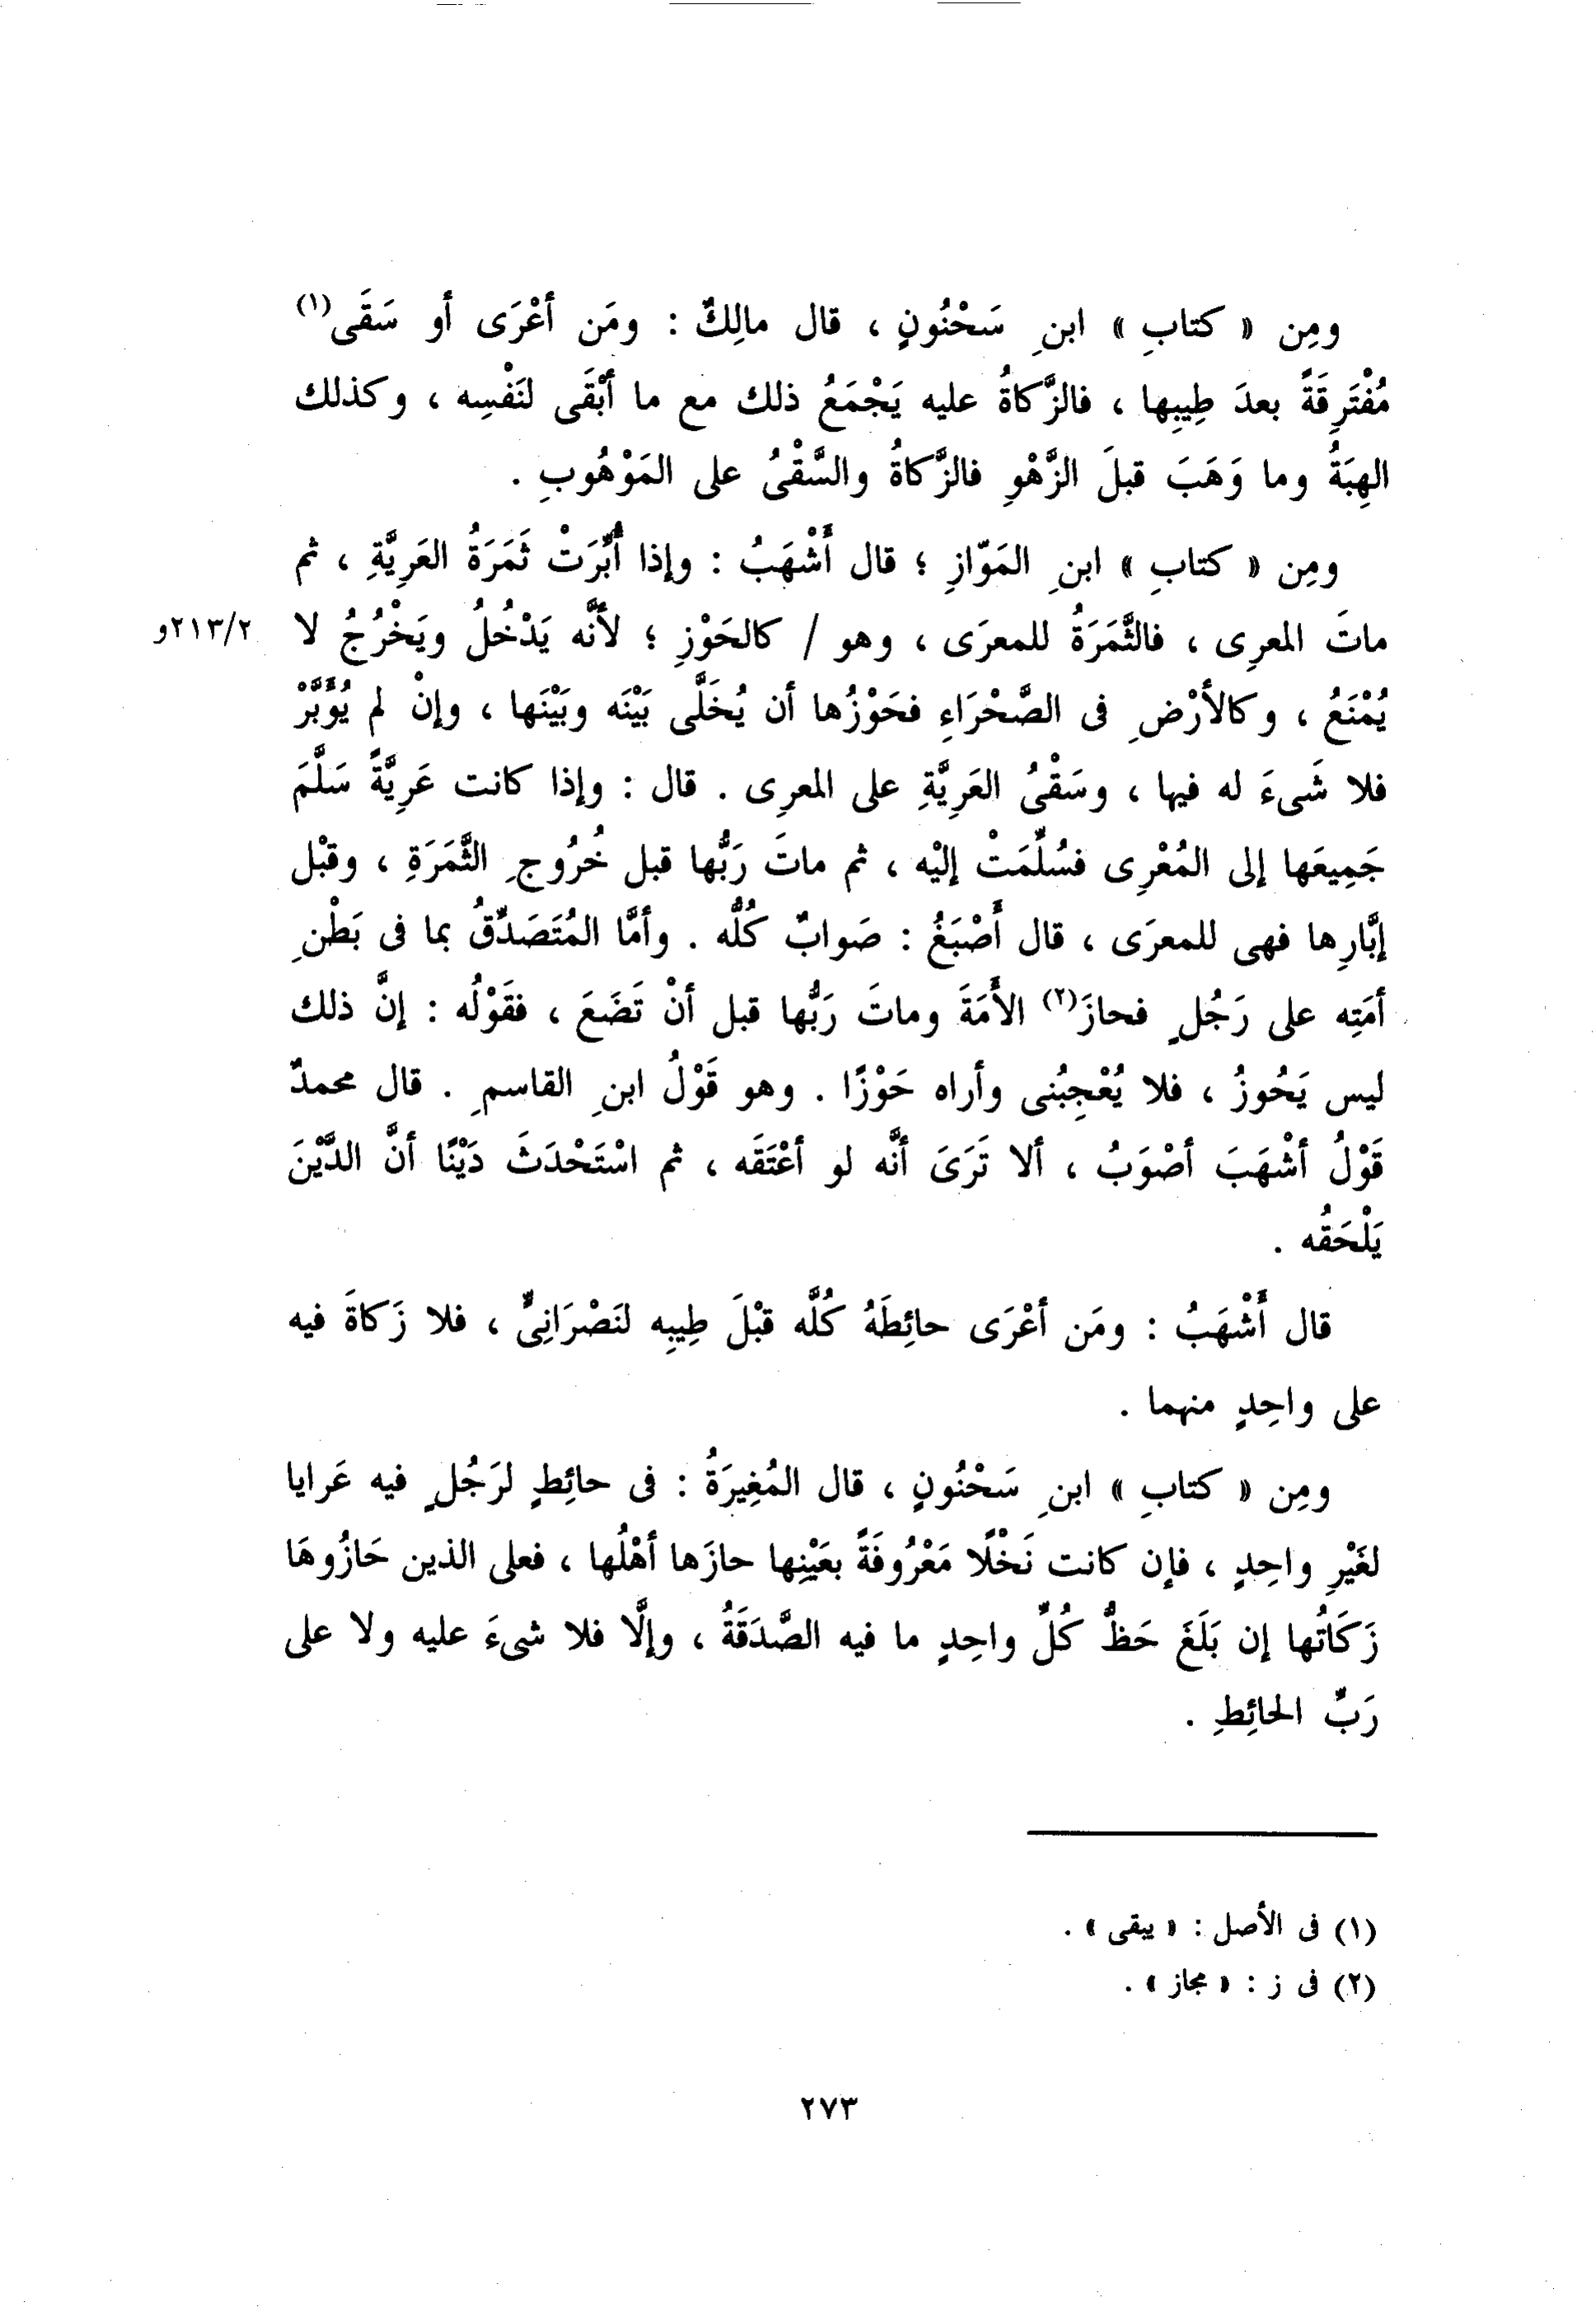 ومِن « كتابِ » ابنِ سَحْنُونٍ ، قال مالِكٌ : ومَن أعْرَى أو سَقَى(١)
مُفْتَرِقَةً بعدَ طِيبِها ، فالزَّكاةُ عليه يَجْمَعُ ذلك مع ما أبْقَى لنَفْسِه ، وكذلك
الهِبَةُ وما وَهَبَ قبلَ الزَّهْوِ فالزَّكاةُ والسَّقْىُ على المَوْهُوبِ .
ومِن « كتابِ » ابنِ المَوّازِ ؛ قال أَشْهَبُ : وإذا أُبِّرَتْ ثَمَرَةُ العَرِيَّةِ ، ثم
ماتَ المعرِى ، فالثَّمَرَةُ للمعرَى ، وهو / كالحَوْزِ ؛ لأنَّه يَدْخُلُ ويَخْرُجُ لا ٢١٣/٢و
يُمْنَعُ ، وكالأرْضِ فى الصَّحْرَاءِ فحَوْزُها أن يُخَلَّى بَيْنَه وبَيْنَها ، وإنْ لم يُؤَبَّرْ
فلا شَىءَ له فيها ، وسَقْىُ العَرِيَّةِ على المعرِى . قال : وإذا كانت عَرِيَّةً سَلَّمَ
جَمِيعَها إلى المُعْرِى فسُلِّمَتْ إليْه ، ثم ماتَ رَبُّها قبل خُرُوجِ الثَّمَرَةِ ، وقبْل
إبَّارِها فهى للمعرَى ، قال أَصْبَغُ : صَوابٌ كُلُّه . وأمَّا المُتَصَدِّقُ بما فى بَطْنِ
أمَتِه على رَجُلٍ فحازَ(٢) الأَمَةَ وماتَ رَبُّها قبل أنْ تَضَعَ ، فقَوْلُه : إنَّ ذلك
ليس يَحُوزُ ، فلا يُعْجِبُنى وأراه حَوْزًا . وهو قَوْلُ ابنِ القاسمِ . قال محمدٌ
قَوْلُ أشْهَبَ أصْوَبُ ، ألا تَرَىَ أنَّه لو أعْتَقَه ، ثم اسْتَحْدَثَ دَيْنًا أنَّ الدَّيْنَ
يَلْحَقُه .
قال أَشْهَبُ : ومَن أعْرَى حائِطَهُ كُلَّه قبْلَ طِيبِه لنَصْرَانِىٍّ ، فلا زَكاةَ فيه
على واحِدٍ منهما .
ومِن « كتابِ » ابنِ سَحْنُونٍ ، قال المُغِيرَةُ : فى حائِطٍ لرَجُلٍ فيه عَرايا
لغَيْرِ واحِدٍ ، فإن كانت نَخْلًا مَعْرُوفَةً بعَيْنِها حازَها أهْلُها ، فعلى الذين حَازُوهَا
زَكَاتُها إن بَلَغَ حَظُّ كُلِّ واحِدٍ ما فيه الصَّدَقَةُ ، وإلَّا فلا شىءَ عليه ولا على
رَبِّ الحائِطِ .
(١) فى الأصل : « يبقى » .
(٢) فى ز : « مجاز » .
٢٧٣